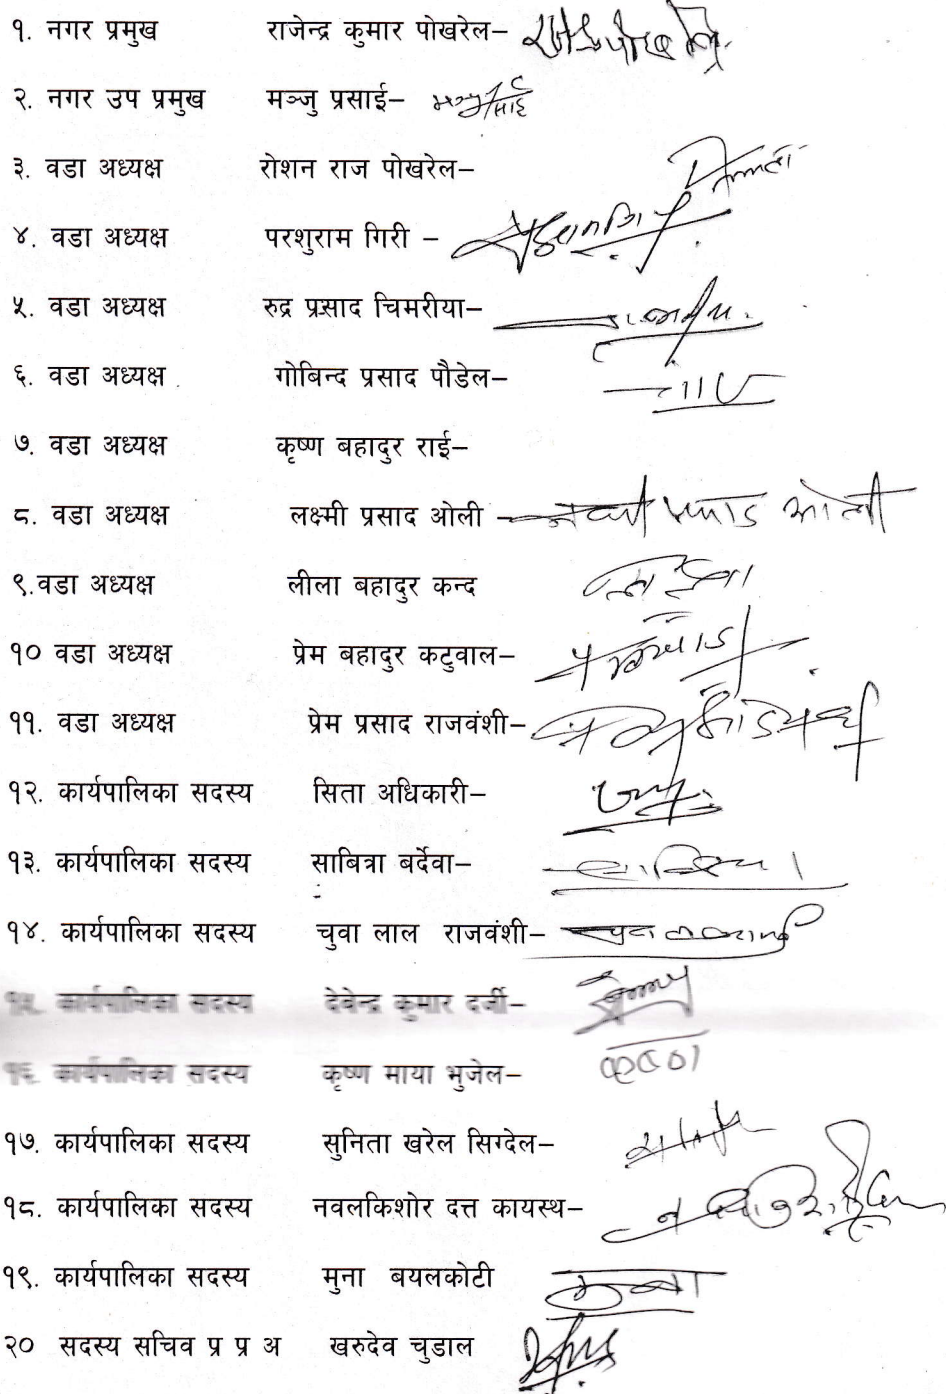 १. नगर प्रमुख राजेन्द्र कुमार पोखरेल–
२. नगर उप प्रमुख मञ्जु प्रसाई–
३. वडा अध्यक्ष रोशन राज पोखरेल–
४. वडा अध्यक्ष परशुराम गिरी –
५. वडा अध्यक्ष रुद्र प्रसाद चिमरीया–
६. वडा अध्यक्ष गोबिन्द प्रसाद पौडेल–
७. वडा अध्यक्ष कृष्ण बहादुर राई–
८. वडा अध्यक्ष लक्ष्मी प्रसाद ओली –
९.वडा अध्यक्ष लीला बहादुर कन्द
१० वडा अध्यक्ष प्रेम बहादुर कटुवाल–
११. वडा अध्यक्ष प्रेम प्रसाद राजवंशी–
१२. कार्यपालिका सदस्य सिता अधिकारी–
१३. कार्यपालिका सदस्य साबित्रा बर्देवा–
१४. कार्यपालिका सदस्य चुवा लाल राजवंशी–
१५. कार्यपालिका सदस्य देवेन्द्र कुमार दर्जी–
१६. कार्यपालिका सदस्य कृष्ण माया भुजेल–
१७. कार्यपालिका सदस्य सुनिता खरेल सिग्देल–
१८. कार्यपालिका सदस्य नवलकिशोर दत्त कायस्थ–
१९. कार्यपालिका सदस्य मुना बयलकोटी
२० सदस्य सचिव प्र प्र अ खरुदेव चुडाल